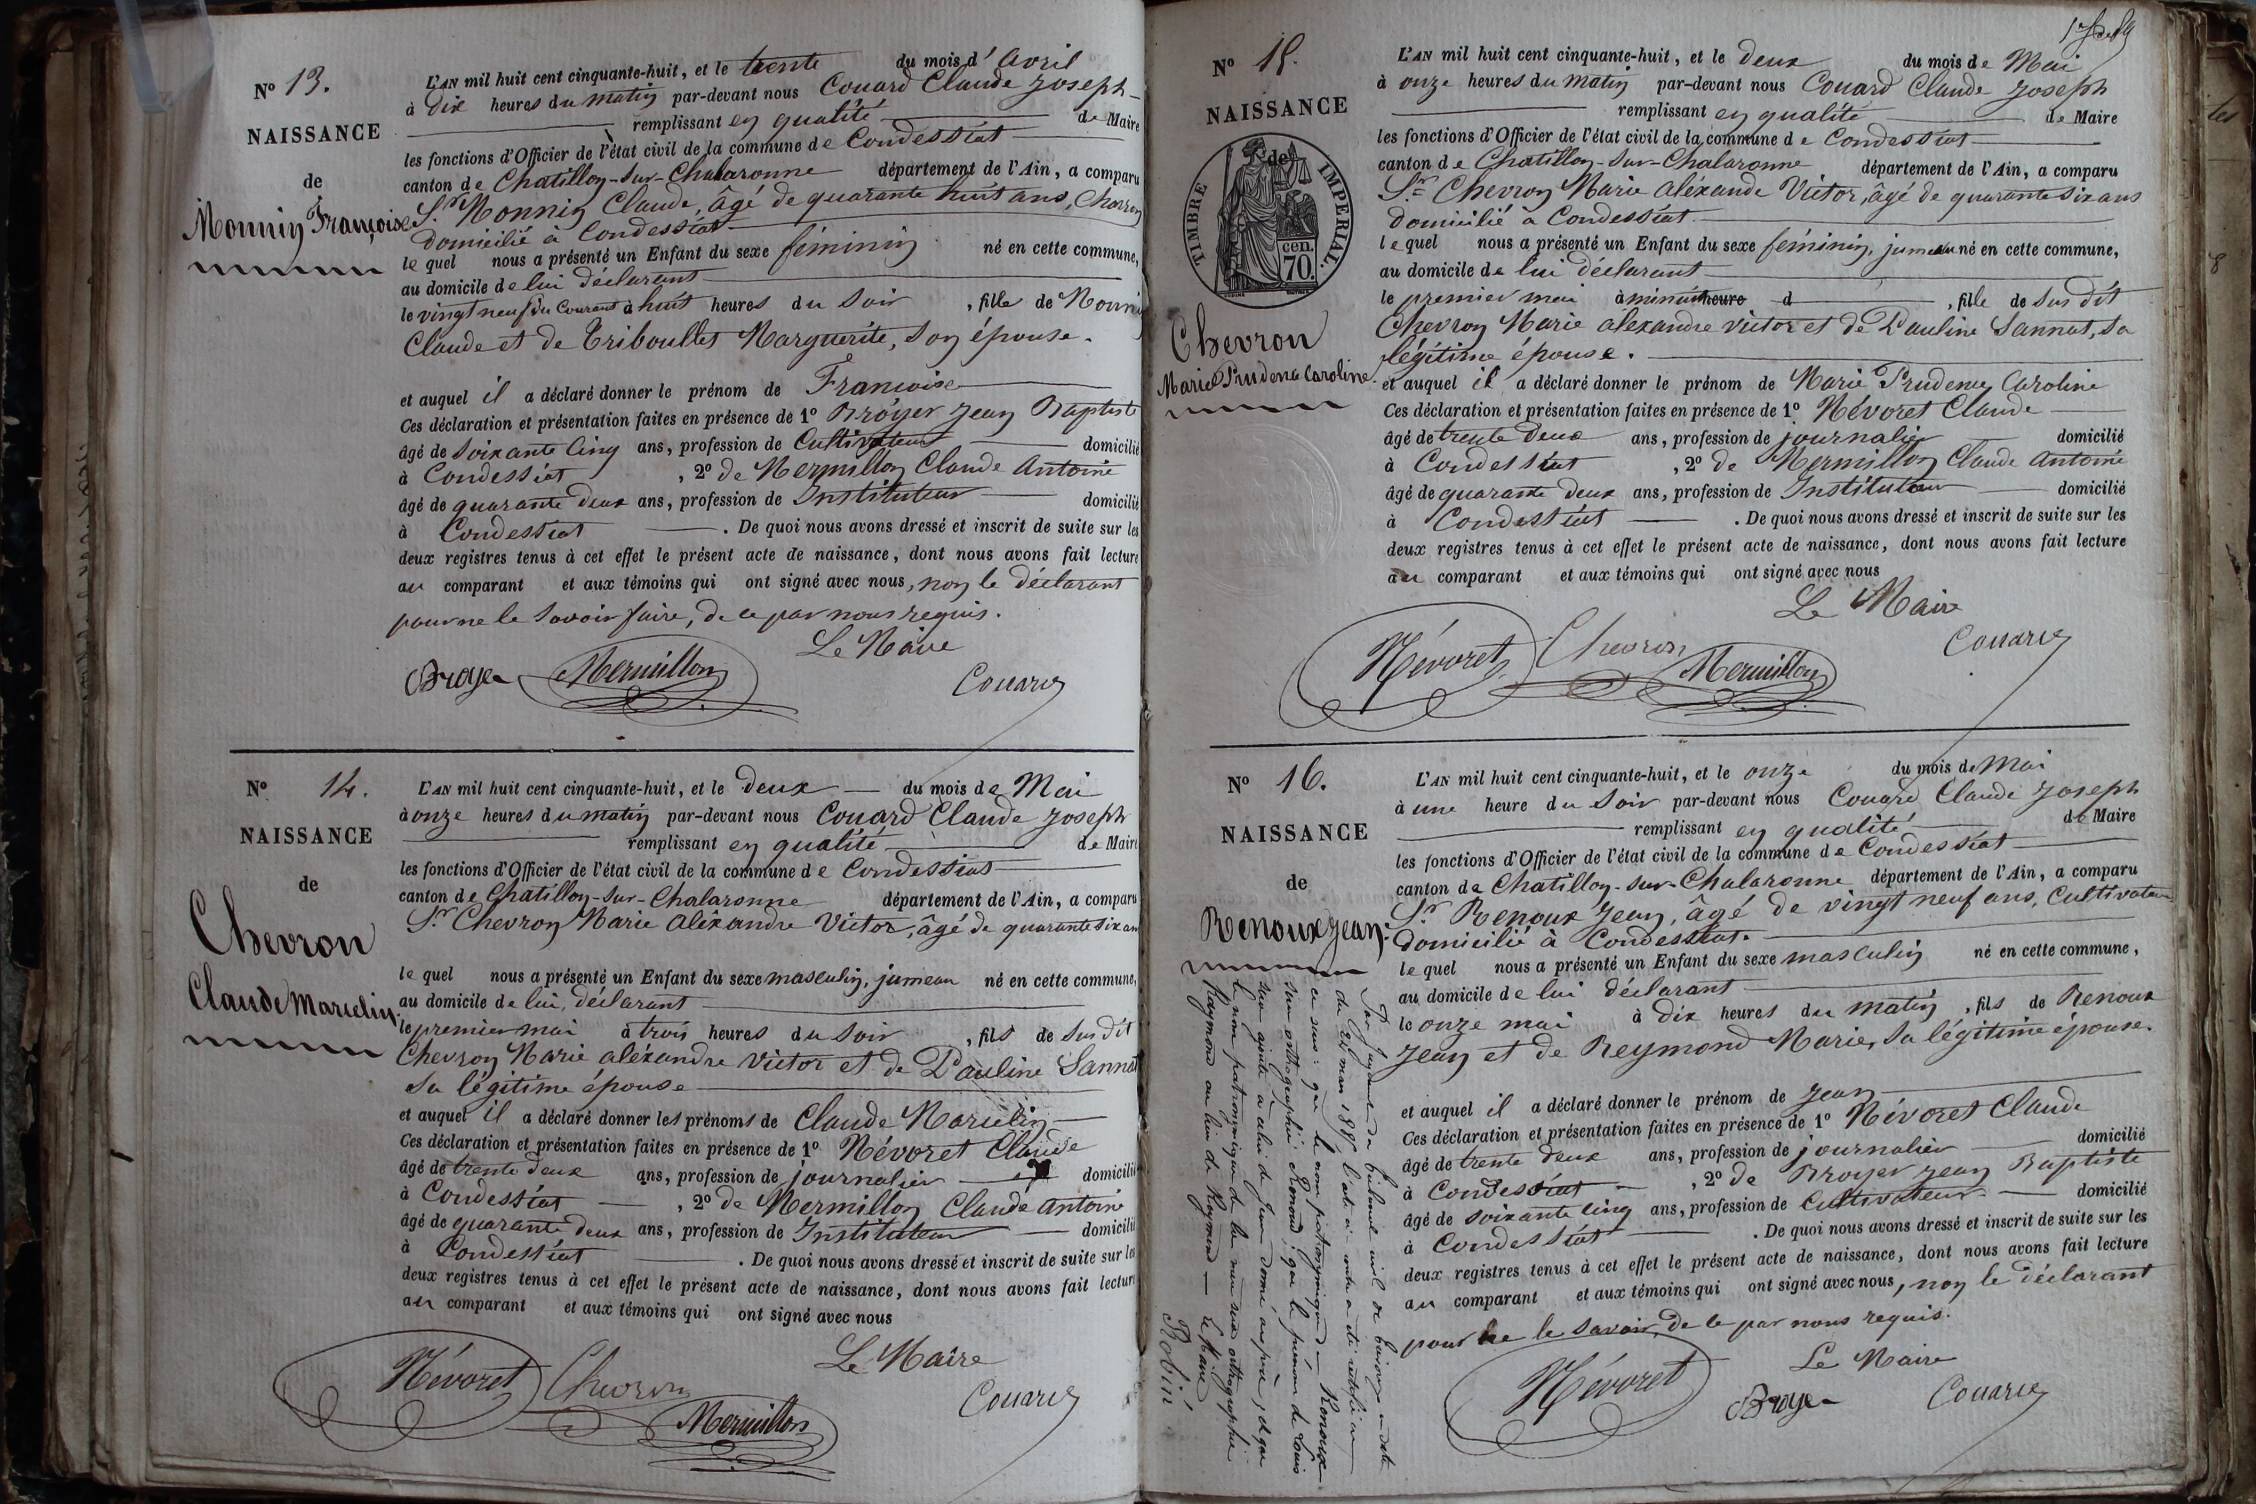 N° 13.
NAISSANCE
de
Monnin Françoise
L'AN mil huit cent cinquante-huit, et le trente du mois d'avril
à dix heures du matin par-devant nous Couard Claude Joseph
remplissant en qualité de Maire
les fonctions d'Officier de l'état civil de la commune de Condessiat
canton de Chatillon-sur-Chalaronne département de l'Ain, a comparu
Sr Monnin Claude, âgé de quarante huit ans, Charron
domicilié à Condessiat
lequel nous a présenté un Enfant du sexe féminin né en cette commune,
au domicile de lui déclarant
le vingt neuf du courant à huit heures du soir, fille de Monnin
Claude et de Triboullet Marguerite, son épouse.
et auquel il a déclaré donner le prénom de Francoise
Ces déclaration et présentation faites en présence de 1° Broyer Jean Baptiste
âgé de soixante cinq ans, profession de Cultivateur domicilié
à Condessiat, 2° de Mermillon Claude Antoine
âgé de quarante deux ans, profession de Instituteur domicilié
à Condessiat. De quoi nous avons dressé et inscrit de suite sur les
deux registres tenus à cet effet le présent acte de naissance, dont nous avons fait lecture
au comparant et aux témoins qui ont signé avec nous, non le déclarant
pour ne le savoir faire, de ce par nous requis.
Le Maire
Broyer Mermillon Couard
N° 14.
NAISSANCE
de
Chevron
Claude Marcelin.
L'AN mil huit cent cinquante-huit, et le deux du mois de Mai
à onze heures du matin par-devant nous Couard Claude Joseph
remplissant en qualité de Maire
les fonctions d'Officier de l'état civil de la commune de Condessiat
canton de Chatillon-sur-Chalaronne département de l'Ain, a comparu
Sr Chevron Marie Aléxandre Victor, âgé de quarante six ans
lequel nous a présenté un Enfant du sexe masculin, jumeau né en cette commune,
au domicile de lui, déclarant
le premier mai à trois heures du soir, fils de sus dit
Chevron Marie aléxandre Victor et de Pauline Sannat
sa légitime épouse
et auquel il a déclaré donner les prénoms de Claude Marcelin
Ces déclaration et présentation faites en présence de 1° Névoret Claude
âgé de trente deux ans, profession de journalier domicilié
à Condessiat, 2° de Mermillon Claude Antoine
âgé de quarante deux ans, profession de Instituteur domicilié
à Condessiat. De quoi nous avons dressé et inscrit de suite sur les
deux registres tenus à cet effet le présent acte de naissance, dont nous avons fait lecture
au comparant et aux témoins qui ont signé avec nous
Le Maire
Névoret Chevron Mermillon Couard
N° 15.
NAISSANCE
de
TIMBRE IMPERIAL.
cen.
70.
Chevron
Marie Prudence Caroline
L'AN mil huit cent cinquante-huit, et le deux du mois de Mai
à onze heures du matin par-devant nous Couard Claude Joseph
remplissant en qualité de Maire
les fonctions d'Officier de l'état civil de la commune de Condessiat
canton de Chatillon-sur-Chalaronne département de l'Ain, a comparu
Sr Chevron Marie aléxande Victor, âgé de quarante six ans
domicilié à Condessiat
lequel nous a présenté un Enfant du sexe féminin, jumeau né en cette commune,
au domicile de lui déclarant
le premier mai à minuit heure d, fille de sus dit
Chevron Marie alexandre victor et de Pauline Sannat, sa
légitime épouse.
et auquel il a déclaré donner le prénom de Marie Prudence Caroline
Ces déclaration et présentation faites en présence de 1° Névoret Claude
âgé de trente deux ans, profession de journalier domicilié
à Condessiat, 2° de Mermillon Claude Antoine
âgé de quarante deux ans, profession de Instituteur domicilié
à Condessiat. De quoi nous avons dressé et inscrit de suite sur les
deux registres tenus à cet effet le présent acte de naissance, dont nous avons fait lecture
au comparant et aux témoins qui ont signé avec nous
Le Maire
Névoret Chevron Mermillon Couard
N° 16.
NAISSANCE
de
Renoux Jean.
L'AN mil huit cent cinquante-huit, et le onze du mois de Mai
à une heure du soir par-devant nous Couard Claude Joseph
remplissant en qualité de Maire
les fonctions d'Officier de l'état civil de la commune de Condessiat
canton de Chatillon-sur-Chalaronne département de l'Ain, a comparu
Sr Renoux Jean, âgé de vingt neuf ans, Cultivateur
domicilié à Condessiat.
lequel nous a présenté un Enfant du sexe masculin né en cette commune,
au domicile de lui déclarant
le onze mai à dix heures du matin, fils de Renoux
Jean et de Reymond Marie, sa légitime épouse.
et auquel il a déclaré donner le prénom de Jean
Ces déclaration et présentation faites en présence de 1° Névoret Claude
âgé de trente deux ans, profession de journalier domicilié
à Condessiat, 2° de Broyer Jean Baptiste
âgé de soixante cinq ans, profession de Cultivateur domicilié
à Condessiat. De quoi nous avons dressé et inscrit de suite sur les
deux registres tenus à cet effet le présent acte de naissance, dont nous avons fait lecture
au comparant et aux témoins qui ont signé avec nous, non le déclarant
pour ne le savoir, de ce par nous requis.
Le Maire
Névoret Broyer Couard
Par jugement du tribunal civil de en date
du mars l'acte ci contre a été rectifié en
ce sens: que le nom patronymique de Renoux
sera ortographié Renoud; que le prénom de Louis
sera ajouté à celui de Jean donné au père; et que
le nom patronymique de la mère sera ortographié
Raymond au lieu de Reymond
Le Maire
Robin